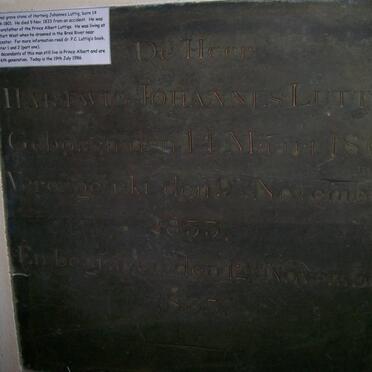 and grave stone of Hartwig Johannes Luttig, born 14
1801. He died 9 Nov. 1833 from an accident. He was
of the Prince Albert Luttigs. He was living at
fort West when he drowned in the Breë River near
For more information read dr. P.C. Luttig's book.
1 and 2 (part one).
decendants of this man still live in Prince Albert and are
6th generation. Today is the 19th July 1986
De Heer
HARTWIG JOHANNES LUTT
Geboren den 14 Maart 18
Verongelukt den 9 Novemb
1833.
En begraven den 12 Novem
1833.